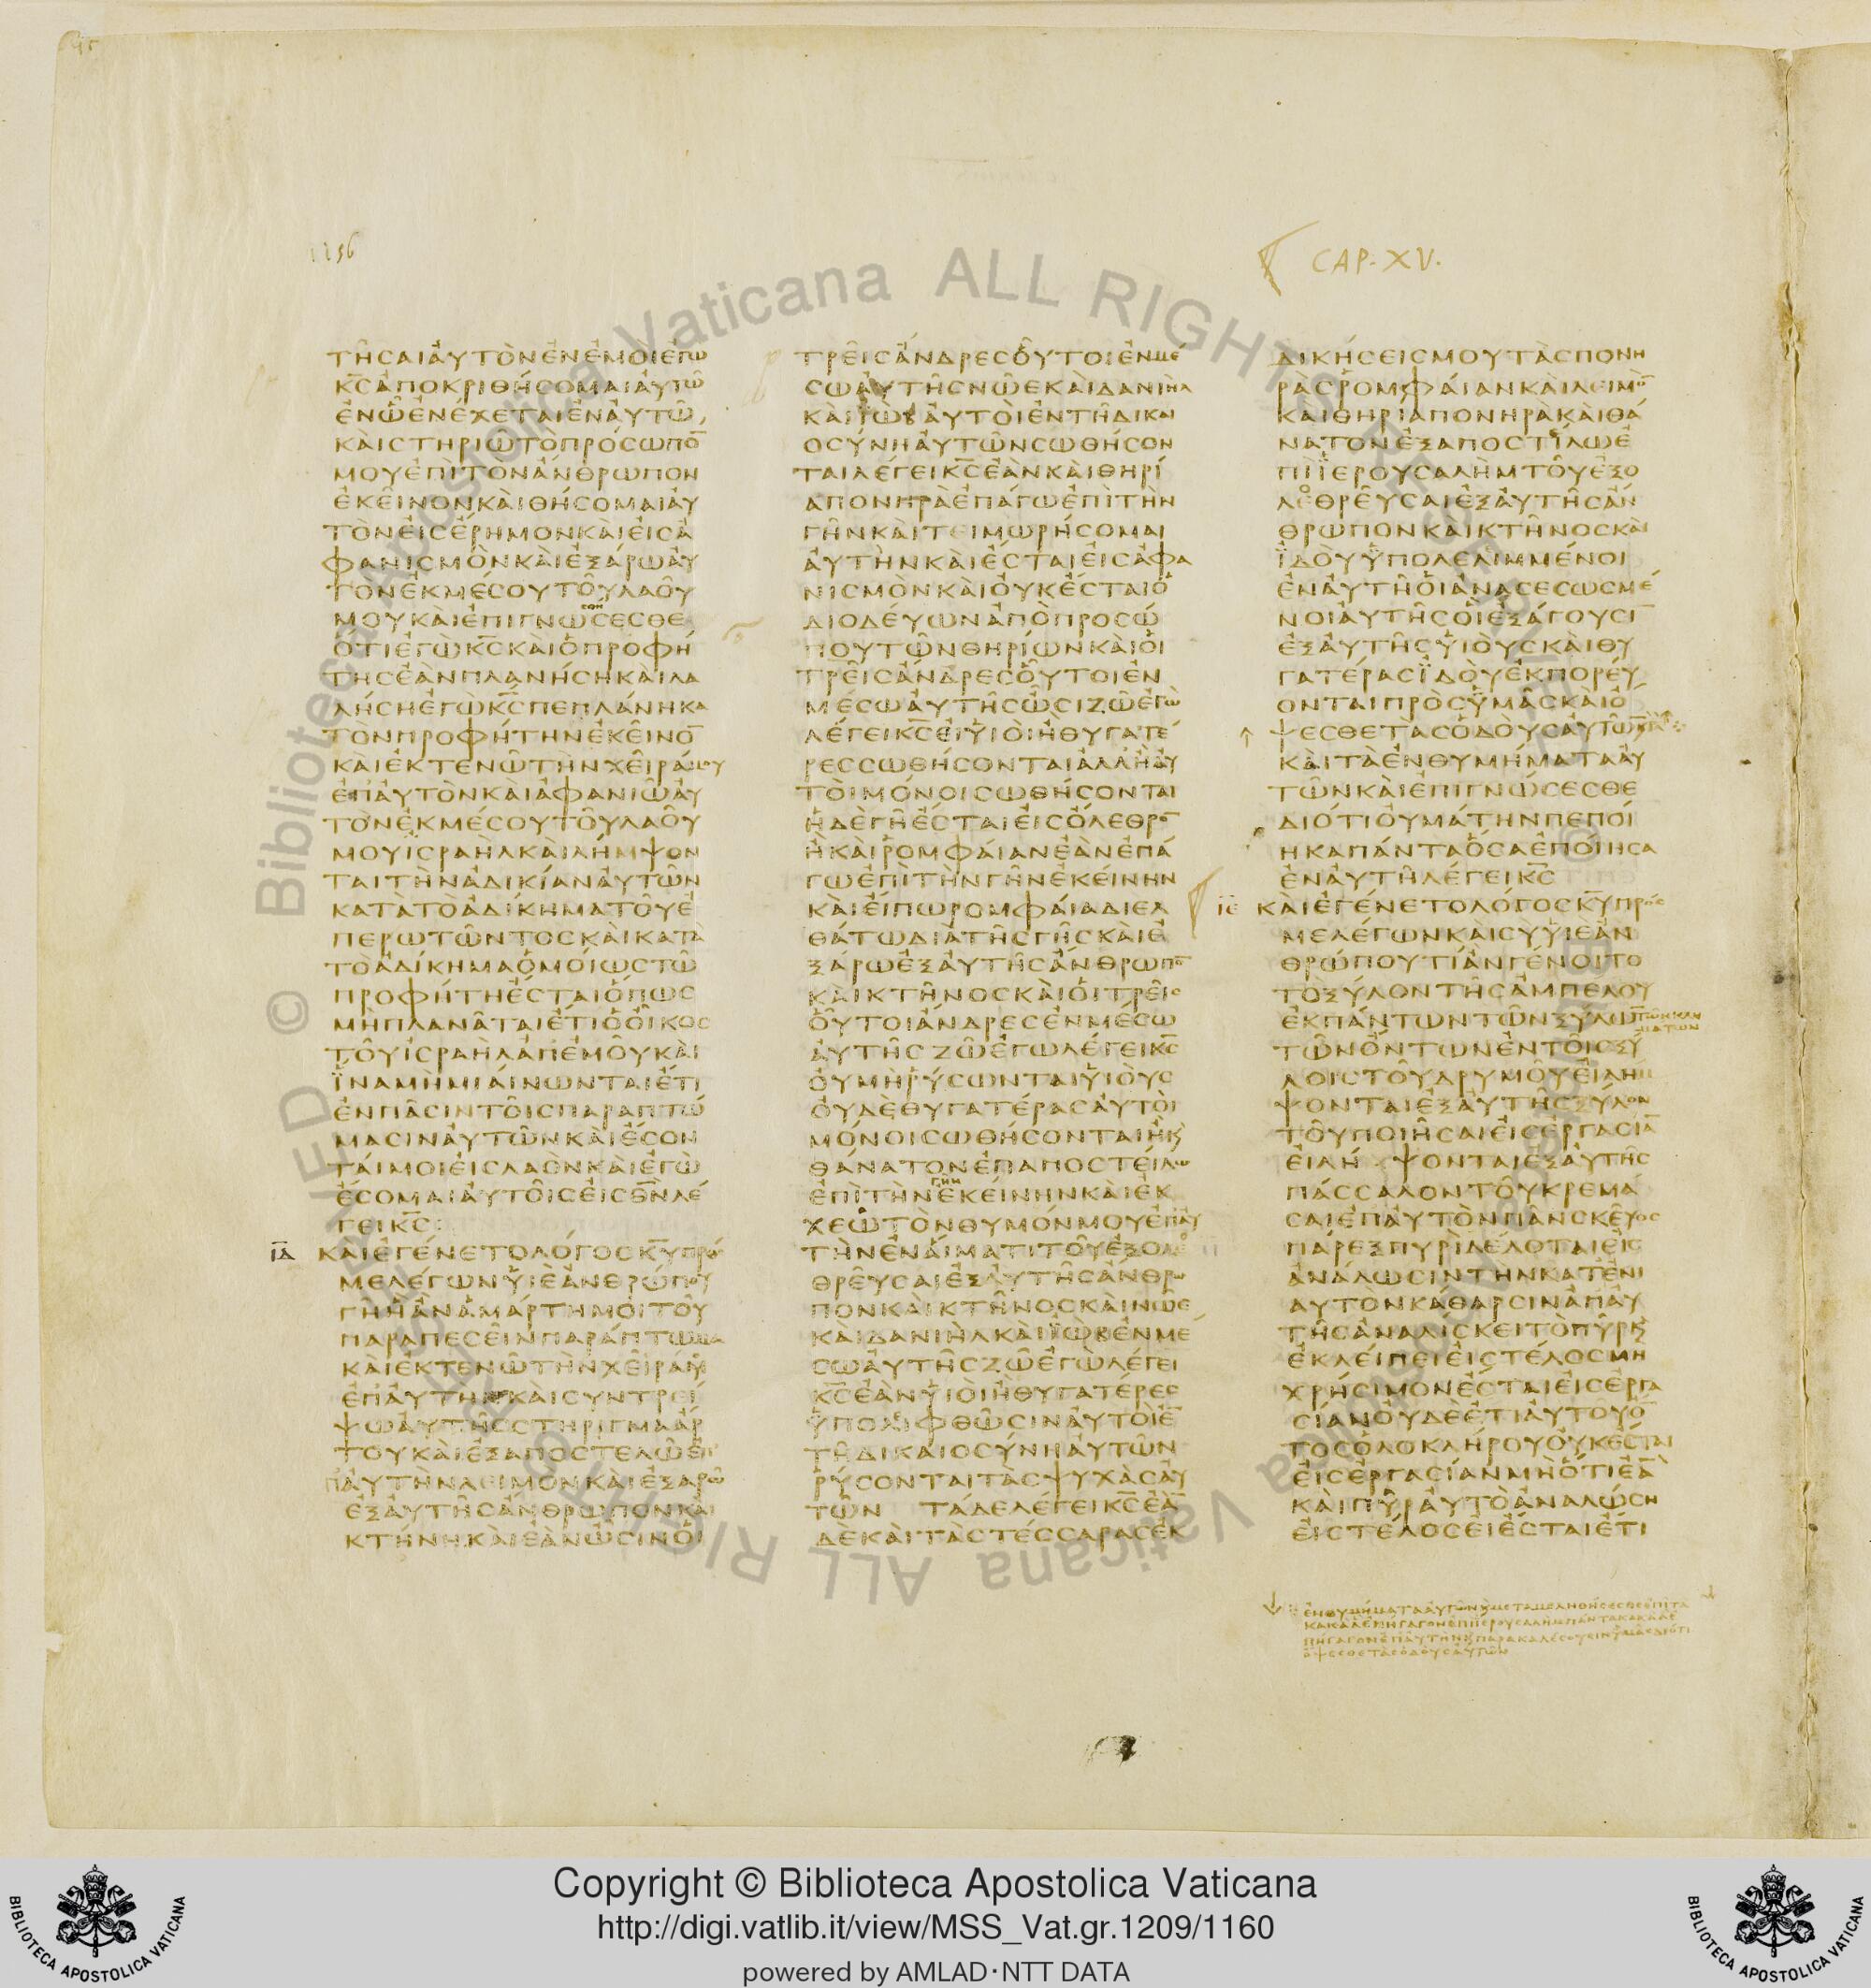 1156
CAP. XV.
ΤΗΣΑΙΑΥΤΟΝΕΝΕΜΟΙΕΓΩ
Κ̅Σ̅ΑΠΟΚΡΙΘΗΣΟΜΑΙΑΥΤΩ
ΕΝΩΕΝΕΧΕΤΑΙΕΝΑΥΤΩ
ΚΑΙΣΤΗΡΙΩΤΟΠΡΟΣΩΠΟ̅
ΜΟΥΕΠΙΤΟΝΑΝΘΡΩΠΟΝ
ΕΚΕΙΝΟΝΚΑΙΘΗΣΟΜΑΙΑΥ
ΤΟΝΕΙΣΕΡΗΜΟΝΚΑΙΕΙΣΑ
ΦΑΝΙΣΜΟΝΚΑΙΕΞΑΡΩΑΥ
ΤΟΝΕΚΜΕΣΟΥΤΟΥΛΑΟΥ
ΜΟΥΚΑΙΕΠΙΓΝΩΣΕΣΘΕ
ΟΤΙΕΓΩΚ̅Σ̅ΚΑΙΟΠΡΟΦΗ
ΤΗΣΕΑΝΠΛΑΝΗΣΗΚΑΙΛΑ
ΛΗΣΗΕΓΩΚ̅Σ̅ΠΕΠΛΑΝΗΚΑ
ΤΟΝΠΡΟΦΗΤΗΝΕΚΕΙΝΟ̅
ΚΑΙΕΚΤΕΝΩΤΗΝΧΕΙΡΑΜΟΥ
ΕΠΑΥΤΟΝΚΑΙΑΦΑΝΙΩΑΥ
ΤΟΝΕΚΜΕΣΟΥΤΟΥΛΑΟΥ
ΜΟΥΙΣΡΑΗΛΚΑΙΛΗΜΨΟΝ
ΤΑΙΤΗΝΑΔΙΚΙΑΝΑΥΤΩΝ
ΚΑΤΑΤΟΑΔΙΚΗΜΑΤΟΥΕ
ΠΕΡΩΤΩΝΤΟΣΚΑΙΚΑΤΑ
ΤΟΑΔΙΚΗΜΑΟΜΟΙΩΣΤΩ
ΠΡΟΦΗΤΗΕΣΤΑΙΟΠΩΣ
ΜΗΠΛΑΝΑΤΑΙΕΤΙΟΟΙΚΟΣ
ΤΟΥΙΣΡΑΗΛΑΠΕΜΟΥΚΑΙ
ΪΝΑΜΗΜΙΑΙΝΩΝΤΑΙΕΤΙ
ΕΝΠΑΣΙΝΤΟΙΣΠΑΡΑΠΤΩ
ΜΑΣΙΝΑΥΤΩΝΚΑΙΕΣΟΝ
ΤΑΙΜΟΙΕΙΣΛΑΟΝΚΑΙΕΓΩ
ΕΣΟΜΑΙΑΥΤΟΙΣΕΙΣΘ̅Ν̅ΛΕ
ΓΕΙΚ̅Σ̅
Ι̅Δ̅ ΚΑΙΕΓΕΝΕΤΟΛΟΓΟΣΚ̅Υ̅ΠΡΟΣ
ΜΕΛΕΓΩΝΥΙΕΑΝΘΡΩΠΟΥ
ΓΗΗΑΝΑΜΑΡΤΗΜΟΙΤΟΥ
ΠΑΡΑΠΕΣΕΙΝΠΑΡΑΠΤΩΜΑ
ΚΑΙΕΚΤΕΝΩΤΗΝΧΕΙΡΑΜΟΥ
ΕΠΑΥΤΗΝΚΑΙΣΥΝΤΡΕΙ
ΨΩΑΥΤΗΣΣΤΗΡΙΓΜΑΑΡ
ΤΟΥΚΑΙΕΞΑΠΟΣΤΕΛΩΕ
ΠΑΥΤΗΝΛΕΙΜΟΝΚΑΙΕΞΑΡΩ
ΕΞΑΥΤΗΣΑΝΘΡΩΠΟΝΚΑΙ
ΚΤΗΝΗΚΑΙΕΑΝΩΣΙΝΟΙ
ΤΡΕΙΣΑΝΔΡΕΣΟΥΤΟΙΕΝΜΕ
ΣΩΑΥΤΗΣΝΩΕΚΑΙΔΑΝΙΗΛ
ΚΑΙΪΩΒΑΥΤΟΙΕΝΤΗΔΙΚΑΙ
ΟΣΥΝΗΑΥΤΩΝΣΩΘΗΣΟΝ
ΤΑΙΛΕΓΕΙΚ̅Σ̅ΕΑΝΚΑΙΘΗΡΙ
ΑΠΟΝΗΡΑΕΠΑΓΩΕΠΙΤΗΝ
ΓΗΝΚΑΙΤΕΙΜΩΡΗΣΟΜΑΙ
ΑΥΤΗΝΚΑΙΕΣΤΑΙΕΙΣΑΦΑ
ΝΙΣΜΟΝΚΑΙΟΥΚΕΣΤΑΙΟ
ΔΙΟΔΕΥΩΝΑΠΟΠΡΟΣΩ
ΠΟΥΤΩΝΘΗΡΙΩΝΚΑΙΟΙ
ΤΡΕΙΣΑΝΔΡΕΣΟΥΤΟΙΕΝ
ΜΕΣΩΑΥΤΗΣΩΣΙΖΩΕΓΩ
ΛΕΓΕΙΚ̅Σ̅ΕΙΥΙΟΙΗΘΥΓΑΤΕ
ΡΕΣΣΩΘΗΣΟΝΤΑΙΑΛΛΗΑΥ
ΤΟΙΜΟΝΟΙΣΩΘΗΣΟΝΤΑΙ
ΗΔΕΓΗΕΣΤΑΙΕΙΣΟΛΕΘΡΟ̅
ΗΚΑΙΡΟΜΦΑΙΑΝΕΑΝΕΠΑ
ΓΩΕΠΙΤΗΝΓΗΝΕΚΕΙΝΗΝ
ΚΑΙΕΙΠΩΡΟΜΦΑΙΑΔΙΕΛ
ΘΑΤΩΔΙΑΤΗΣΓΗΣΚΑΙΕ
ΞΑΡΩΕΞΑΥΤΗΣΑΝΘΡΩΠΟ̅
ΚΑΙΚΤΗΝΟΣΚΑΙΟΙΤΡΕΙΣ
ΟΥΤΟΙΑΝΔΡΕΣΕΝΜΕΣΩ
ΑΥΤΗΣΖΩΕΓΩΛΕΓΕΙΚ̅Σ̅
ΟΥΜΗΡΥΣΩΝΤΑΙΥΙΟΥΣ
ΟΥΔΕΘΥΓΑΤΕΡΑΣΑΥΤΟΙ
ΜΟΝΟΙΣΩΘΗΣΟΝΤΑΙΗΚϚ
ΘΑΝΑΤΟΝΕΠΑΠΟΣΤΕΙΛΩ
ΕΠΙΤΗΝΓΗΝΕΚΕΙΝΗΝΚΑΙΕΚ
ΧΕΩΤΟΝΘΥΜΟΝΜΟΥΕΠΑΥ
ΤΗΝΕΝΑΙΜΑΤΙΤΟΥΕΞΟΛΕ
ΘΡΕΥΣΑΙΕΞΑΥΤΗΣΑΝΘΡΩ
ΠΟΝΚΑΙΚΤΗΝΟΣΚΑΙΝΩΕ
ΚΑΙΔΑΝΙΗΛΚΑΙΪΩΒΕΝΜΕ
ΣΩΑΥΤΗΣΖΩΕΓΩΛΕΓΕΙ
Κ̅Σ̅ΕΑΝΥΙΟΙΗΘΥΓΑΤΕΡΕΣ
ΥΠΟΛΙΦΘΩΣΙΝΑΥΤΟΙΕ̅
ΤΗΔΙΚΑΙΟΣΥΝΗΑΥΤΩΝ
ΡΥΣΟΝΤΑΙΤΑΣΨΥΧΑΣΑΥ
ΤΩΝ ΤΑΔΕΛΕΓΕΙΚ̅Σ̅ΕΑ̅
ΔΕΚΑΙΤΑΣΤΕΣΣΑΡΑΣΕΚ
ΔΙΚΗΣΕΙΣΜΟΥΤΑΣΠΟΝΗ
ΡΑΣΡΟΜΦΑΙΑΝΚΑΙΛΕΙΜΟ̅
ΚΑΙΘΗΡΙΑΠΟΝΗΡΑΚΑΙΘΑ
ΝΑΤΟΝΕΞΑΠΟΣΤΙΛΩΕ
ΠΙΪΕΡΟΥΣΑΛΗΜΤΟΥΕΞΟ
ΛΕΘΡΕΥΣΑΙΕΞΑΥΤΗΣΑΝ
ΘΡΩΠΟΝΚΑΙΚΤΗΝΟΣΚΑΙ
ΪΔΟΥΥΠΟΛΕΛΙΜΜΕΝΟΙ
ΕΝΑΥΤΗΟΙΑΝΑΣΕΣΩΣΜΕ
ΝΟΙΑΥΤΗΣΟΙΕΞΑΓΟΥΣΙ̅
ΕΞΑΥΤΗΣΥΙΟΥΣΚΑΙΘΥ
ΓΑΤΕΡΑΣΪΔΟΥΕΚΠΟΡΕΥ
ΟΝΤΑΙΠΡΟΣΥΜΑΣΚΑΙΟ
ΨΕΣΘΕΤΑΣΟΔΟΥΣΑΥΤΩ̅
ΚΑΙΤΑΕΝΘΥΜΗΜΑΤΑΑΥ
ΤΩΝΚΑΙΕΠΙΓΝΩΣΕΣΘΕ
ΔΙΟΤΙΟΥΜΑΤΗΝΠΕΠΟΙ
ΗΚΑΠΑΝΤΑΟΣΑΕΠΟΙΗΣΑ
ΕΝΑΥΤΗΛΕΓΕΙΚ̅Σ̅
Ι̅Ε̅ ΚΑΙΕΓΕΝΕΤΟΛΟΓΟΣΚ̅Υ̅ΠΡΟΣ
ΜΕΛΕΓΩΝΚΑΙΣΥΥΙΕΑΝ
ΘΡΩΠΟΥΤΙΑΝΓΕΝΟΙΤΟ
ΤΟΞΥΛΟΝΤΗΣΑΜΠΕΛΟΥ
ΕΚΠΑΝΤΩΝΤΩΝΞΥΛΩ̅ΤΩΝΚΛΗ
ΜΑΤΩΝ
ΤΩΝΟΝΤΩΝΕΝΤΟΙΣΞΥ
ΛΟΙΣΤΟΥΔΡΥΜΟΥΕΙΛΗΜ
ΨΟΝΤΑΙΕΞΑΥΤΗΣΞΥΛΟΝ
ΤΟΥΠΟΙΗΣΑΙΕΙΣΕΡΓΑΣΙΑ̅
ΕΙΛΗ ΨΟΝΤΑΙΕΞΑΥΤΗΣ
ΠΑΣΣΑΛΟΝΤΟΥΚΡΕΜΑ
ΣΑΙΕΠΑΥΤΟΝΠΑΝΣΚΕΥΟΣ
ΠΑΡΕΞΠΥΡΙΔΕΔΟΤΑΙΕΙΣ
ΑΝΑΛΩΣΙΝΤΗΝΚΑΤΕΝΙ
ΑΥΤΟΝΚΑΘΑΡΣΙΝΑΠΑΥ
ΤΗΣΑΝΑΛΙΣΚΕΙΤΟΠΥΡϚ
ΕΚΛΕΙΠΕΙΕΙΣΤΕΛΟΣΜΗ
ΧΡΗΣΙΜΟΝΕΣΤΑΙΕΙΣΕΡΓΑ
ΣΙΑΝΟΥΔΕΕΤΙΑΥΤΟΥΟ̅
ΤΟΣΟΛΟΚΛΗΡΟΥΟΥΚΕΣΤΑΙ
ΕΙΣΕΡΓΑΣΙΑΝΜΗΟΤΙΕΑ̅
ΚΑΙΠΥΡΑΥΤΟΑΝΑΛΩΣΗ
ΕΙΣΤΕΛΟΣΕΙΕΣΤΑΙΕΤΙ
ΕΝΘΥΜΗΜΑΤΑΑΥΤΩΝϚΜΕΤΑΜΕΛΗΘΗΣΕΣΘΕΕΠΙΤΑ
ΚΑΚΑΑΕΠΗΓΑΓΟΝΕΠΙΪΕΡΟΥΣΑΛΗΜΠΑΝΤΑΚΑΚΑΑΕ
ΠΗΓΑΓΟΝΕΠΑΥΤΗΝϚΠΑΡΑΚΑΛΕΣΟΥΣΙΝΥΜΑΣΔΙΟΤΙ
ΟΨΕΣΘΕΤΑΣΟΔΟΥΣΑΥΤΩΝ
© Biblioteca Apostolica Vaticana ALL RIGHTS RESERVED
Copyright © Biblioteca Apostolica Vaticana
http://digi.vatlib.it/view/MSS_Vat.gr.1209/1160
powered by AMLAD·NTT DATA
BIBLIOTECA APOSTOLICA VATICANA
BIBLIOTECA APOSTOLICA VATICANA